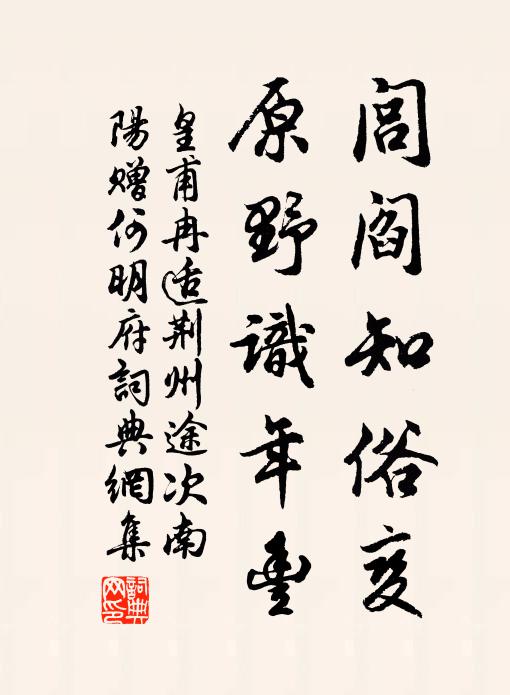 閭閻知俗變
原野識年豐
皇甫冉适荆州途次南
陽贈何明府詞典網集
詞典網印